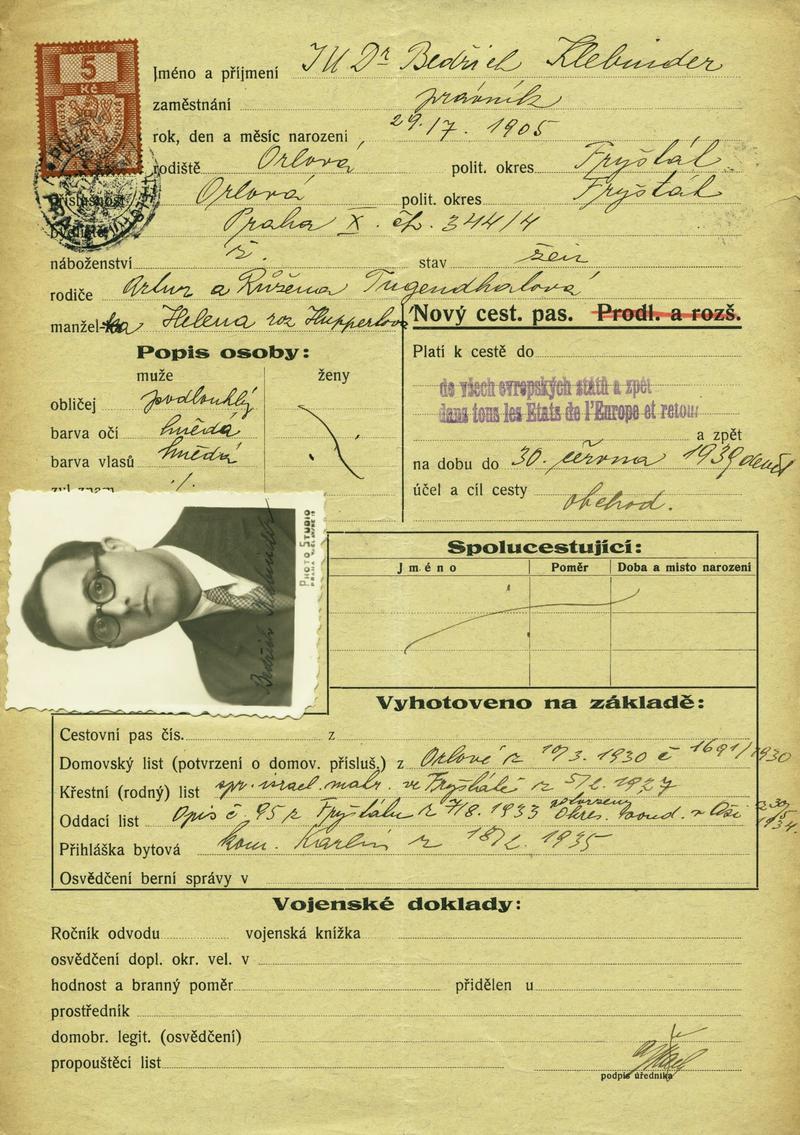 KOLEK
5
Kč
Jméno a příjmení JUDr Bedřich Klebinder
zaměstnání právník
rok, den a měsíc narození 29./7. 1905
rodiště Orlová polit. okres Fryštát
příslušnost Orlová polit. okres Fryštát
Praha X. čp. 344/4
náboženství ž. stav žen
rodiče Artur a Růžena Tugendhatová
manžel-ka Helena roz Huppertová
Nový cest. pas. Prodl. a rozš.
Popis osoby:
muže ženy
obličej podlouhlý
barva očí hnědá
barva vlasů hnědá
zvl. znam. ·/.
Platí k cestě do
do všech evropských států a zpět
dans tous les Etats de l'Europe et retour
a zpět
na dobu do 30. června 1939
účel a cíl cesty obchod.
PHOTO STUDIO
Bedřich Klebinder
Spolucestující:
Jméno Poměr Doba a místo narození
Vyhotoveno na základě:
Cestovní pas čís. z
Domovský list (potvrzení o domov. přísluš.) z Orlové z 10/3. 1930 č 1691/1930
Křestní (rodný) list spr. israel. matr. ve Fryštátě z 5/2. 1927
Oddací list Opis č 95 z Fryštátu z 7/8. 1933 potvrzený Okres. soud. v
Přihláška bytová kom. Karlín z 18/2. 1935
Osvědčení berní správy v
Vojenské doklady:
Ročník odvodu vojenská knížka
osvědčení dopl. okr. vel. v
hodnost a branný poměr přidělen u
prostředník
domobr. legit. (osvědčení)
propouštěcí list
podpis úředníka